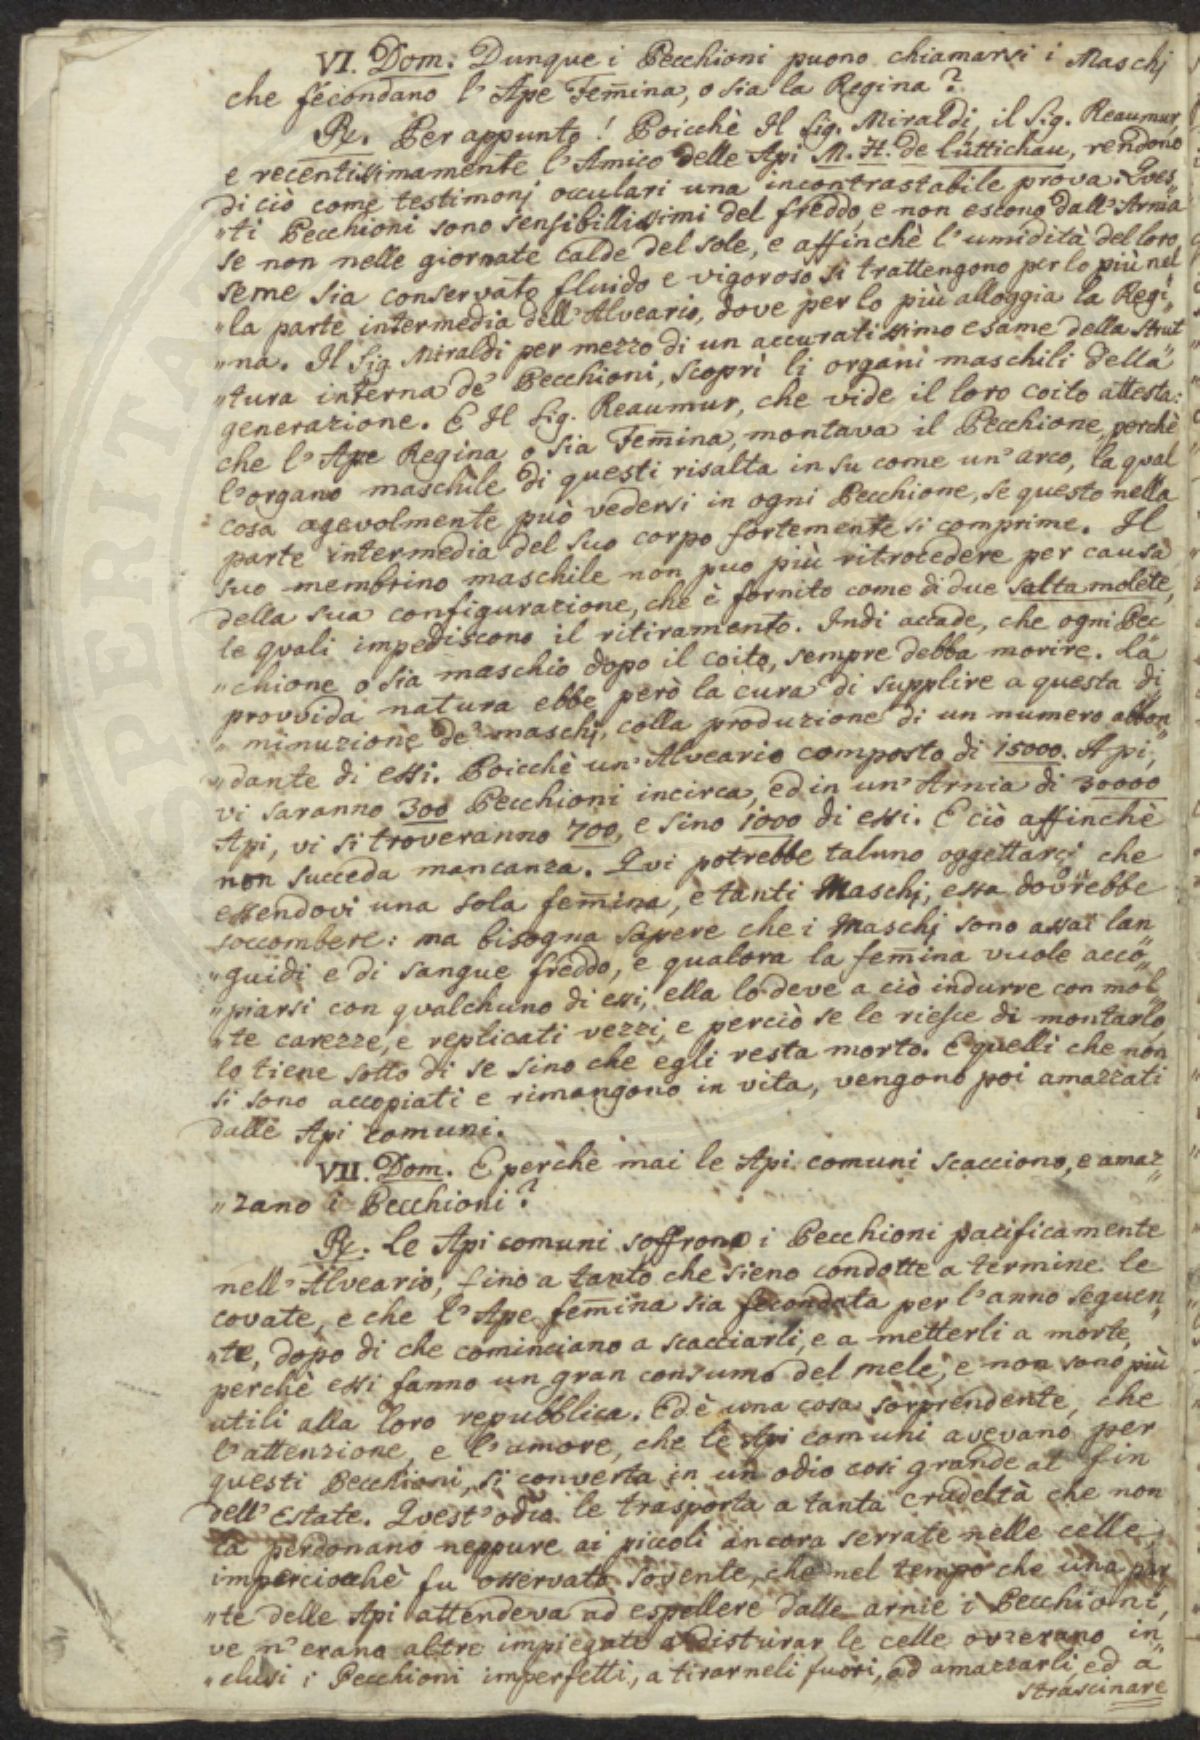 VI. Dom. Dunque i Pecchioni puono chiamarsi i Maschj
che fecondano l'Ape Fem̄ina, o sia la Regina?
℞. Per appunto! Poicchè Il Sig. Miraldi, il Sig. Reaumur,
e recentissimamente l'Amico delle Api M. H. de Lüttichau, rendono
di ciò come testimonj occulari una incontrastabile prova: Qves„
„ti Pecchioni sono sensibillissimi del freddo, e non escono dall'Arnia
se non nelle giornate calde del sole, e affinchè l'umidità del loro
seme sia conservato fluido e vigoroso si trattengono per lo più nel
„la parte intermedia dell'Alveario, dove per lo più alloggia la Regi„
„na. Il Sig. Miraldi per mezzo di un accuratissimo esame della strut
„tura interna de' Pecchioni, scoprì li organi maschili della
generazione. E Il Sig. Reaumur, che vide il loro coito attesta:
che l'Ape Regina o sia Fem̄ina, montava il Pecchione, perchè
l'organo maschile di questi risalta in su come un'arco, la qual
cosa agevolmente può vedersi in ogni Pecchione, se questo nella
parte intermedia del suo corpo fortemente si comprime. Il
suo membrino maschile non puo più ritrocedere per causa
della sua configurazione, che è fornito come di due salta molete,
le quali impediscono il ritiramento. Indi accade, che ogni Pec
„chione o sia maschio dopo il coito, sempre debba morire. La
provvida natura ebbe però la cura di supplire a questa di„
„minuzione de' maschj, colla produzione di un numero abbon„
„dante di essi. Poicchè un'Alveario composto di 15000. Api,
vi saranno 300 Pecchioni incirca, ed in un'Arnia di 30000
Api, vi si troveranno 700, e sino 1000 di essi. E ciò affinchè
non succeda mancanza. Qvi potrebbe taluno oggettarçi che
essendovi una sola fem̄ina, e tanti Maschj, essa dovrebbe
soccombere: ma bisogna sapere che i Maschj sono assai lan
„guidi e di sangue freddo, e qualora la fem̄ina vuole acco„
„piarsi con qvalchuno di essi, ella lo deve a ciò indurre con mol„
„te carezze, e replicati vezzi, e perciò se le riesce di montarlo,
lo tiene sotto di se sino che egli resta morto. E quelli che non
si sono accopiati e rimangono in vita, vengono poi amazzati
dalle Api comuni.
VII. Dom. E perchè mai le Api comuni scacciono, e amaz„
„zano i Pecchioni?
℞. Le Api comuni soffrono i Pecchioni pacificamente
nell'Alveario, fino a tanto che sieno condotte a termine le
covate, e che l'Ape fem̄ina sia fecondata per l'anno seguen„
„te, dopo di che cominciano a scacciarli, e a metterli a morte,
perchè essi fanno un gran consumo del mele, e non sono più
utili alla loro repubblica. Ed è una cosa sorprendente, che
l'attenzione, e l'amore, che le Api comuni avevano per
questi Pecchioni, si converta in un odio così grande al fin
dell'Estate. Qvest'odio le trasporta a tanta crudeltà che non
la perdonano neppure ai piccoli ancora serrate nelle celle,
imperciocchè fu osservato sovente, che nel tempo che una par
„te delle Api attendeva ad espellere dalle arnie i Pecchioni,
ve n'erano altre impiegate a disturar le celle ov'erano in„
„clusi i Pecchioni imperfetti, a tirarneli fuori, ad amazzarli ed a
strascinare